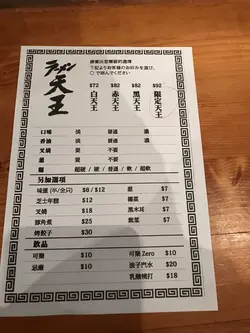 ラーメン
天王
請圈出您需要的選擇
下記よりお客様のお好みを選び、
○で囲んでください
$72 $82 $82 $92
白天王 赤天王 黑天王 限定天王
口味 淡 普通 濃
香油 淡 普通 濃
叉燒 要 不要
蔥 要 不要
麵 超硬 / 硬 / 普通 / 軟 / 超軟
另加選項
味蛋 (半/全只) $6 / $12
芝士年糕 $12
叉燒 $18
豚角煮 $25
烤餃子 $30
蔥 $7
椰菜 $7
黑木耳 $7
紫菜 $7
飲品
可樂 $10
忌廉 $10
可樂 Zero $10
波子汽水 $20
乳酸桃打 $18